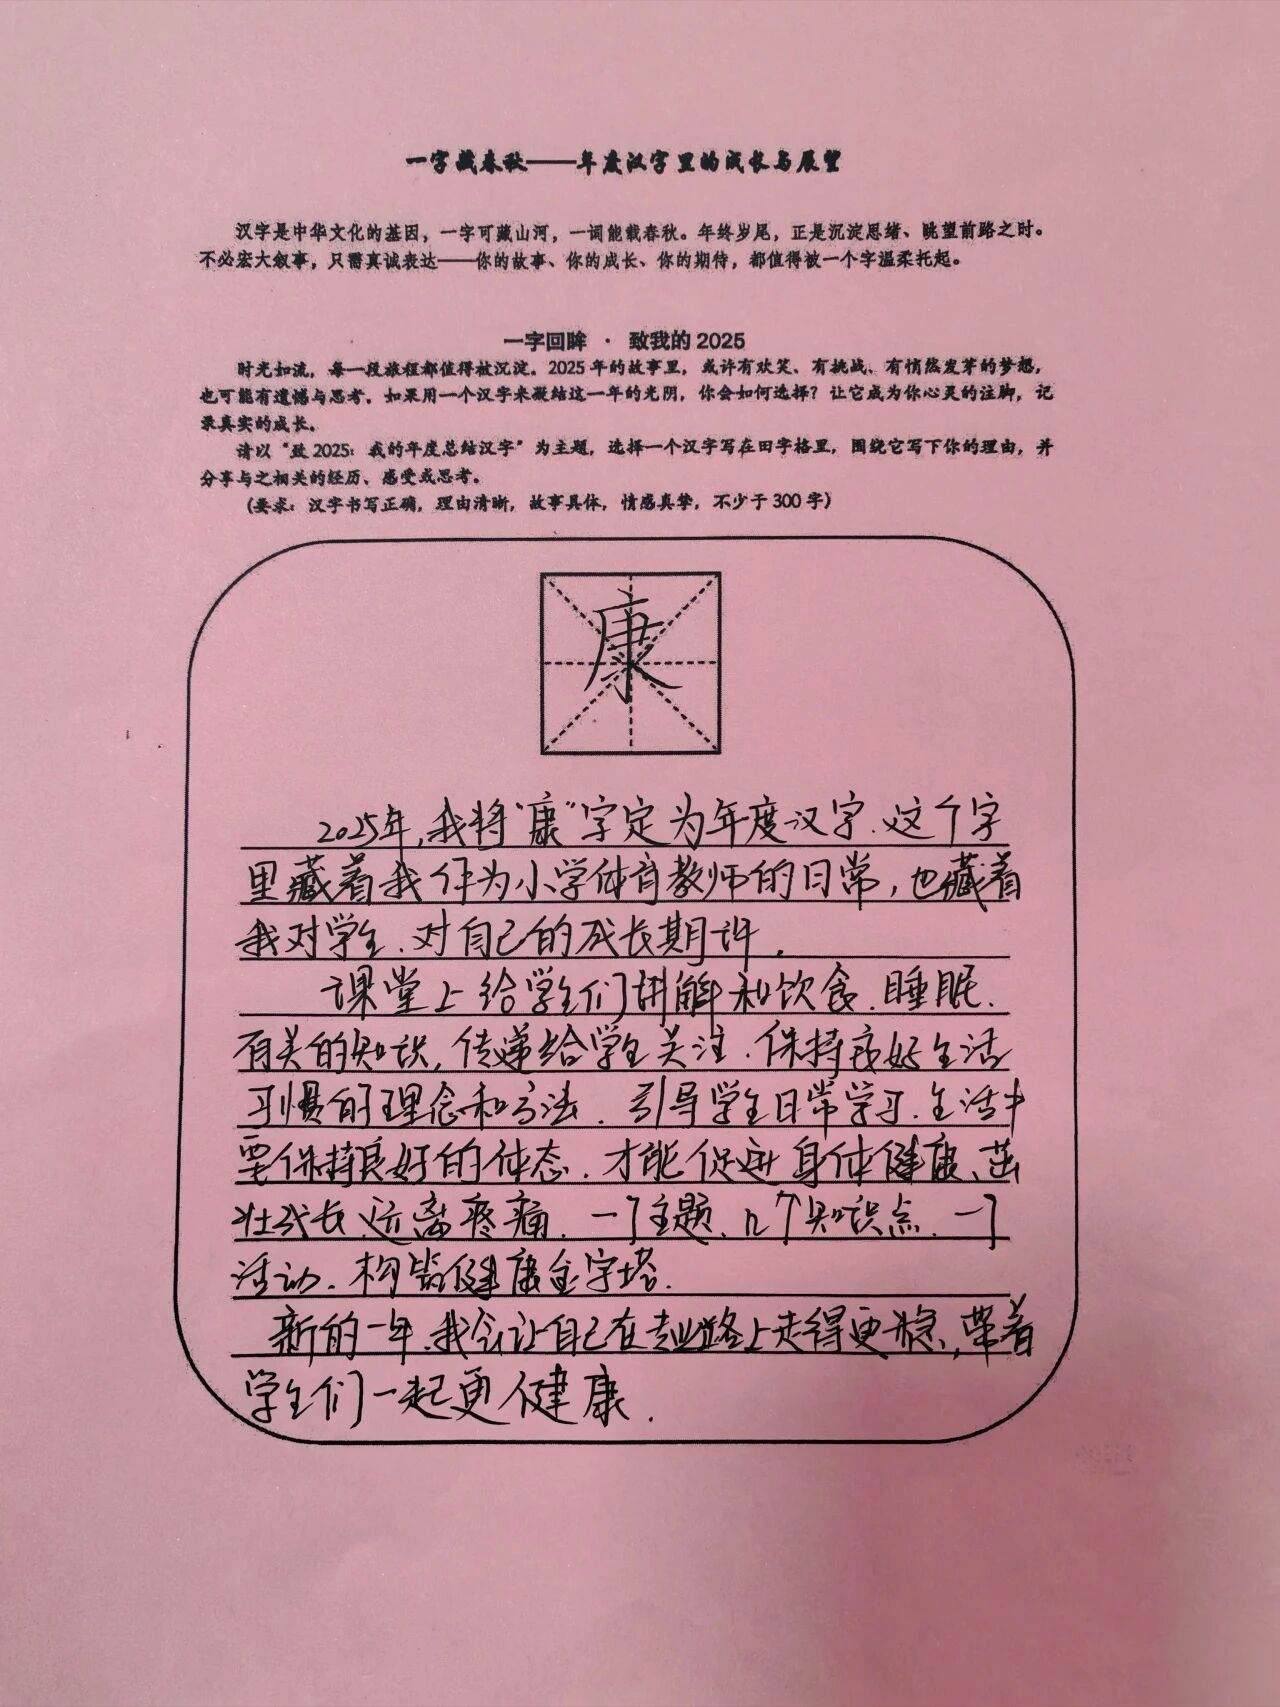 一字藏春秋——年度汉字里的成长与展望
汉字是中华文化的基因，一字可藏山河，一词能载春秋。年终岁尾，正是沉淀思绪、眺望前路之时。
不必宏大叙事，只需真诚表达——你的故事、你的成长、你的期待，都值得被一个字温柔托起。
一字回眸 · 致我的 2025
时光如流，每一段旅程都值得被沉淀。2025 年的故事里，或许有欢笑、有挑战、有悄然发芽的梦想，
也可能有遗憾与思考。如果用一个汉字来凝结这一年的光阴，你会如何选择？让它成为你心灵的注脚，记
录真实的成长。
请以“致 2025：我的年度总结汉字”为主题，选择一个汉字写在田字格里，围绕它写下你的理由，并
分享与之相关的经历、感受或思考。
（要求：汉字书写正确，理由清晰，故事具体，情感真挚，不少于 300 字）
康
2025年，我将“康”字定为年度汉字.这个字
里藏着我作为小学体育教师的日常，也藏着
我对学生.对自己的成长期许.
课堂上给学生们讲解和饮食.睡眠.
有关的知识，传递给学生关注.保持良好生活
习惯的理念和方法.引导学生日常学习.生活中
要保持良好的体态.才能促进身体健康、茁
壮成长.远离疼痛.一个主题、几个知识点.一个
活动.构筑健康金字塔.
新的一年.我会让自己在专业路上走得更稳，带着
学生们一起更健康.